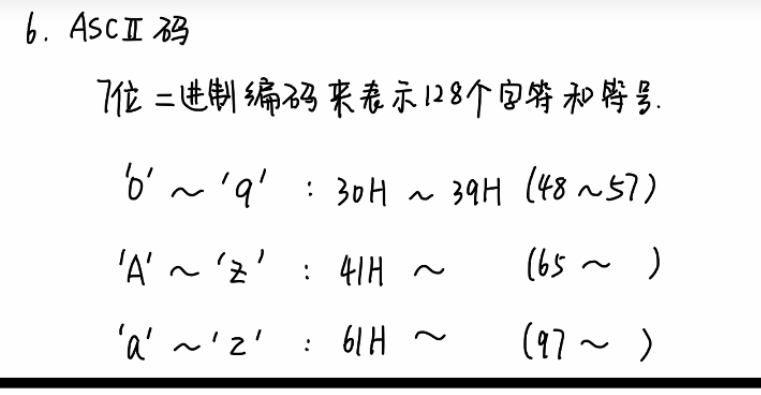 6. ASCⅡ码
7位二进制编码来表示128个字符和符号.
'0' ~ '9' : 30H ~ 39H (48~57)
'A' ~ 'Z' : 41H ~ (65 ~ )
'a' ~ 'z' : 61H ~ (97 ~ )